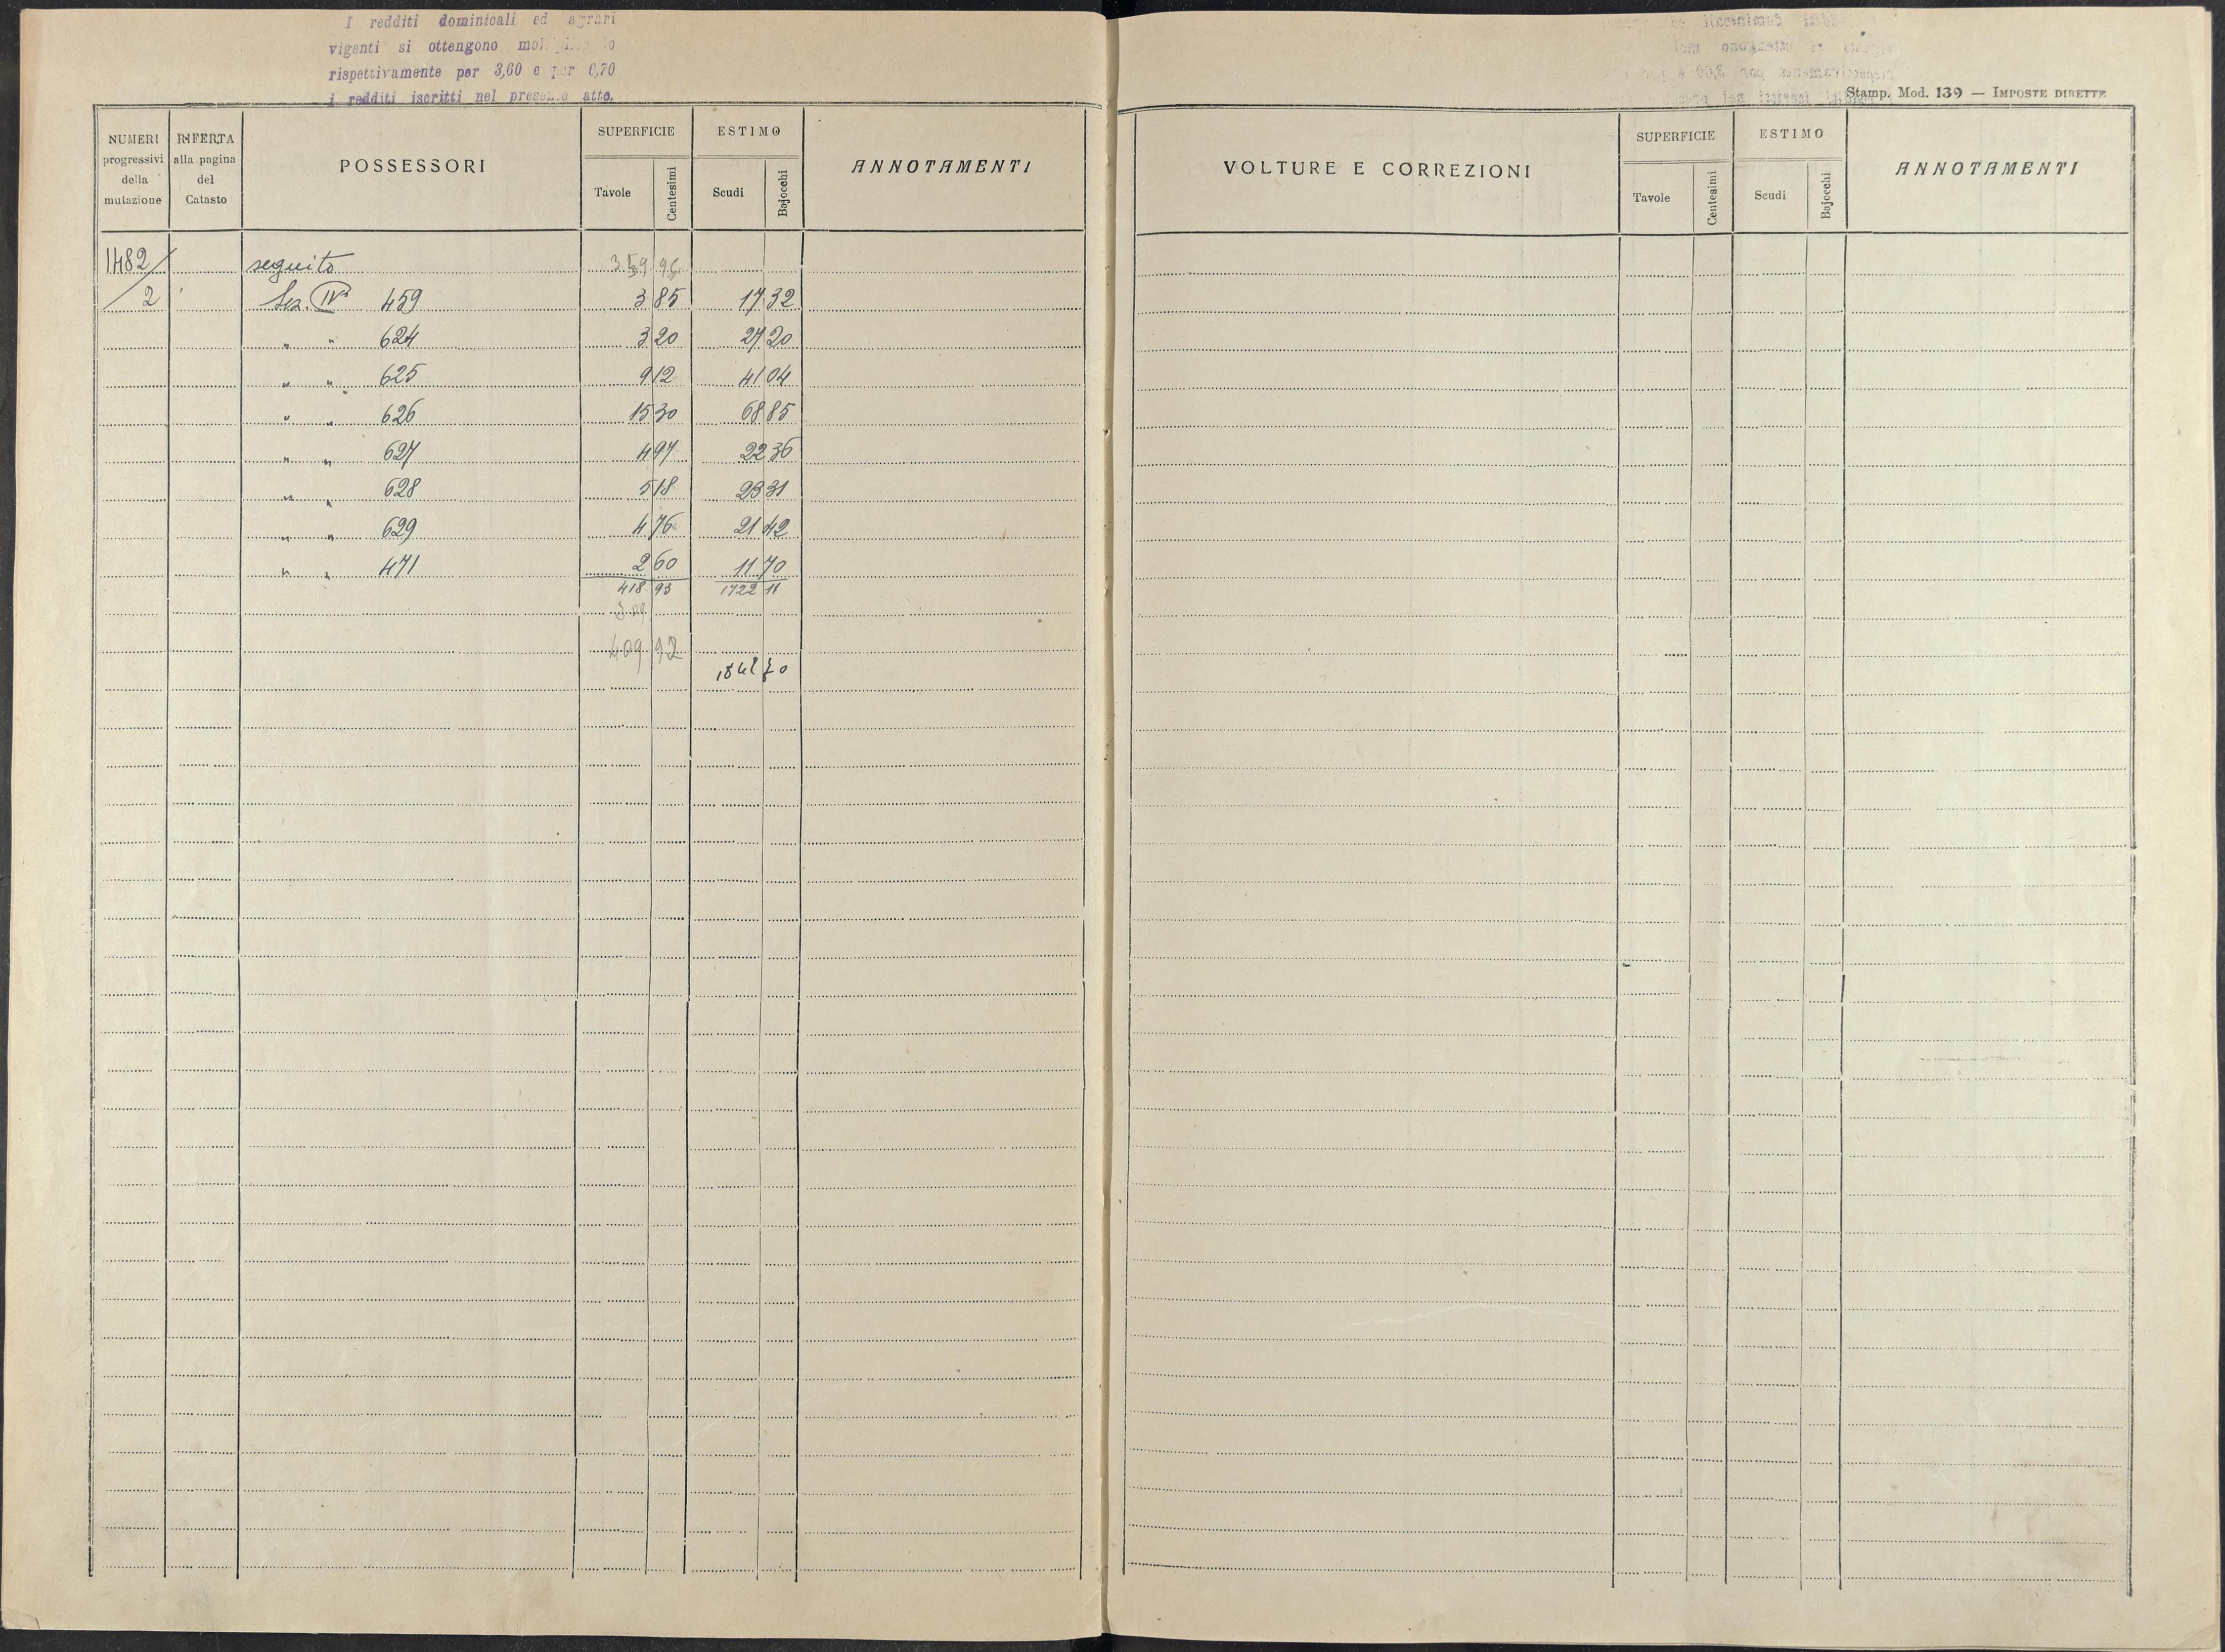 I redditi dominicali ed agrari
vigenti si ottengono
rispettivamente per 3,60 e per 0,70
i redditi iscritti nel presente atto.
NUMERI progressivi della mutazione
RIFERTA alla pagina del Catasto
POSSESSORI
SUPERFICIE
Tavole
Centesimi
ESTIMO
Scudi
Bajocchi
ANNOTAMENTI
1482/ seguito 359 96
/2 Sez. IVª 459 3 85 17 32
" " 624 3 20 27 20
" " 625 9 12 41 04
" " 626 15 30 68 85
" " 627 4 97 22 36
" " 628 5 18 23 31
" " 629 4 76 21 42
" " 471 2 60 11 70
418 93 1722 11
409 92
Stamp. Mod. 139 — IMPOSTE DIRETTE
VOLTURE E CORREZIONI
SUPERFICIE
Tavole
Centesimi
ESTIMO
Scudi
Bajocchi
ANNOTAMENTI